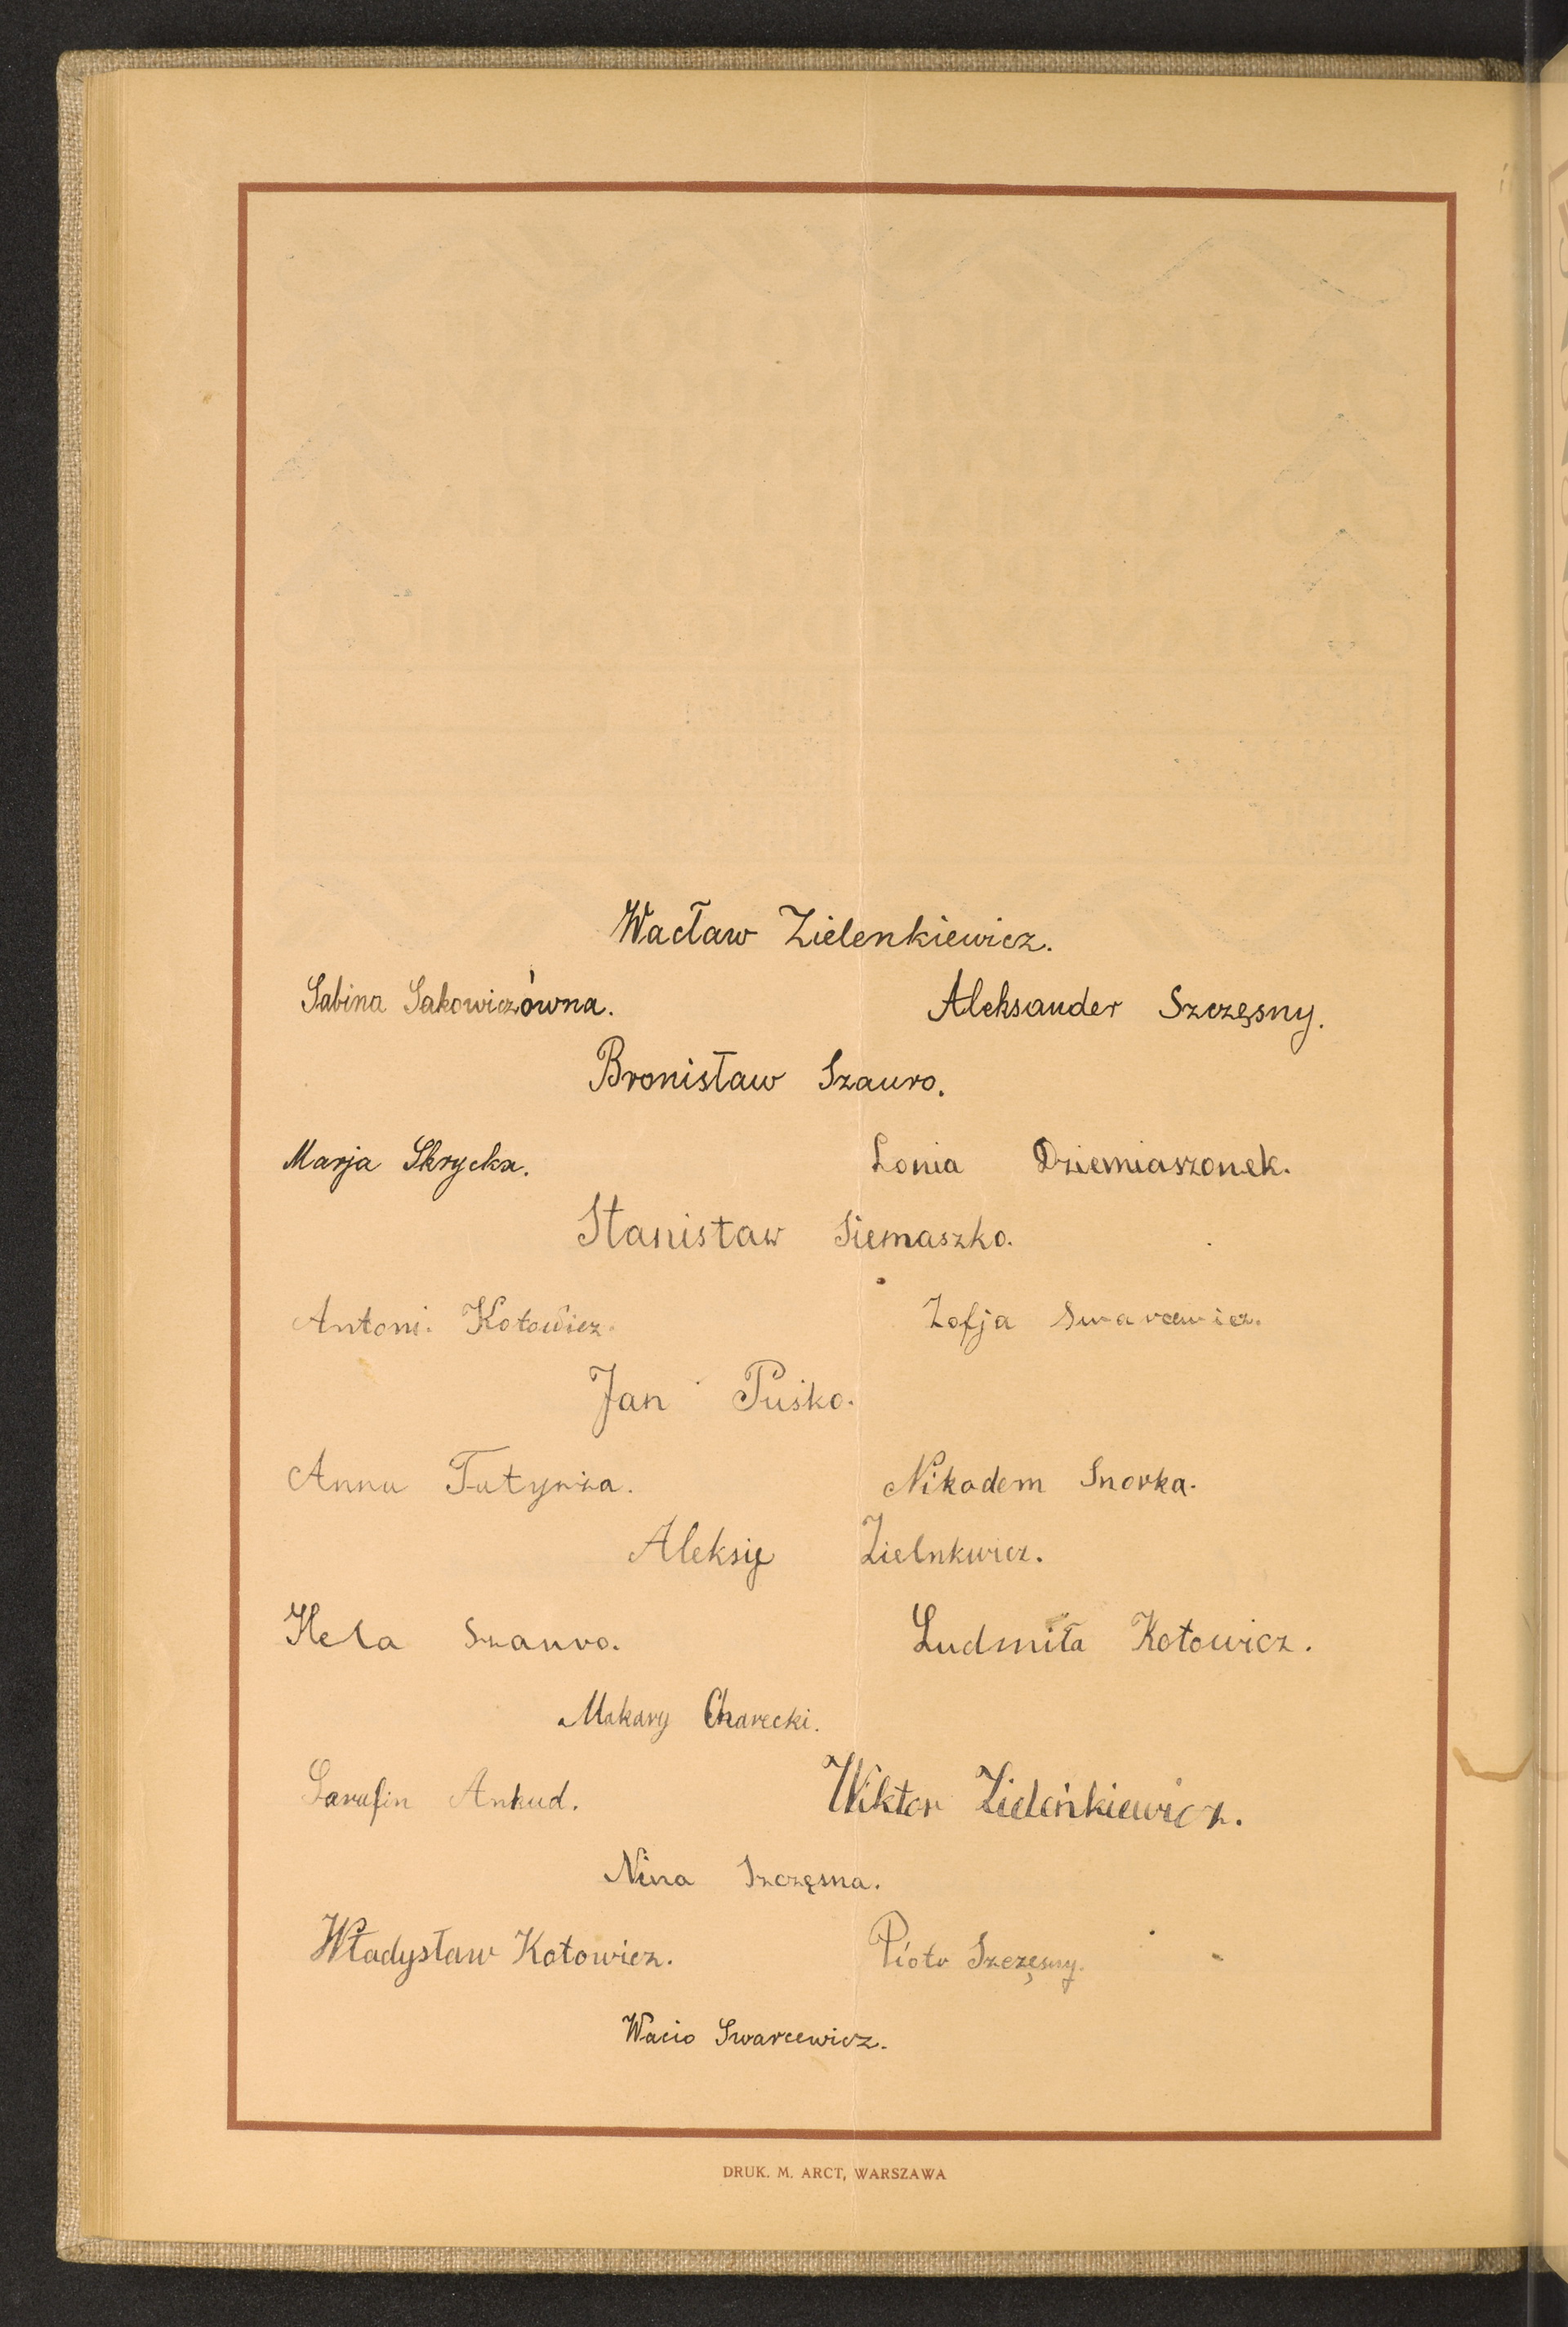 Wacław Zielenkiewicz.
Sabina Sakowiczówna. Aleksander Szczęsny.
Bronisław Szauro.
Marja Skrycka. Lonia Dziemiaszonek.
Stanisław Siemaszko.
Antoni. Kotowicz. Zofja Swarcewicz.
Jan Puśko.
Anna Nikodem Snorka.
Aleksię Zielnkwicz.
Hela Szauro. Ludmiła Kotowicz.
Makary Charecki.
Sarafin Ankud. Wiktor Zieleńkiewicz.
Nina Szczęsna.
Władysław Kotowicz. Piotr Szczęsny.
Wacio Swarcewicz.
DRUK. M. ARCT, WARSZAWA